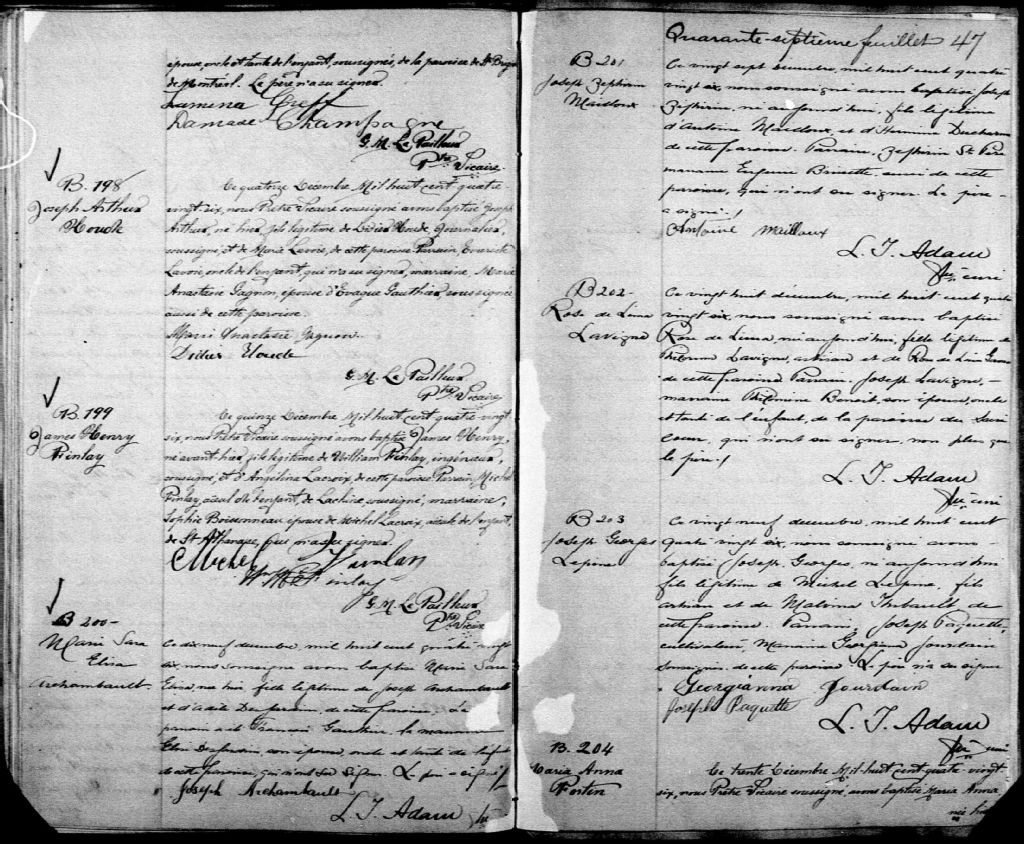 épouse, oncle et tante de l'enfant, soussignés, de la paroisse de St Brigide
de Montréal. Le père n'a su signer.
Damase Champagne
G. M. Le Pailleur
Ptre Vicaire.
B. 198
Joseph Arthur
Houde
Ce quatorze Décembre Mil huit cent quatre
vingt-six, nous Prêtre Vicaire soussigné avons baptisé Joseph
Arthur, né hier, fils légitime de Didier Houde, Journalier,
soussigné, et de Marie Lavoie, de cette paroisse Parrain, Evariste
Lavoie, oncle de l'enfant, qui n'a su signer, marraine, Marie
Anastasie Gagnon, épouse d'Evagre Gauthier, soussignée
aussi de cette paroisse.
Marie Anastasie Gagnon
Didier Houde
G. M. Le Pailleur
Ptre Vicaire
B. 199
James Henry
Finlay
Ce quinze Décembre Mil huit cent quatre vingt
six, nous Prêtre Vicaire soussigné avons baptisé James Henry,
né avant hier, fils légitime de William Finlay, ingénieur,
soussigné, et d'Angelina Lacroix, de cette paroisse Parrain Michel
Finlay, aïeul de l'enfant, de Lachine, soussigné, marraine,
Sophie Boissonneau épouse de Michel Lacroix, aïeule de l'enfant,
de St Athanase, qui n'a su signer.
Michel Finlay
Wm Finlay
G. M. Le Pailleur
Ptre Vicaire
B 200 -
Marie Sara
Elisa
Archambault
Ce dix neuf décembre, mil huit cent quatre vingt
six, nous soussigné avons baptisé Marie Sara
Elisa, née hier, fille légitime de Joseph Archambault
et d'Adèle de cette paroisse. Le
parrain a été François Gauthier la marraine
son épouse, oncle et tante de l'enfant
de cette paroisse, qui n'ont su signer. Le père a signé
Joseph Archambault
L. J. Adam
Quarante-septième feuillet 47
B 201
Joseph Zéphirin
Mailloux
Ce vingt sept décembre, mil huit cent quatre
vingt six, nous soussigné avons baptisé Joseph
Zéphirin, né aujourd'hui, fils légitime
d'Antoine Mailloux, et d'Hermine Ducharme
de cette paroisse. Parrain, Zéphirin St Père
marraine Euphémie Brisette aussi de cette
paroisse, qui n'ont su signer. Le père
a signé.
Antoine Mailloux
L. J. Adam
Ptre curé
B 202 -
Rose de Lima
Lavigne
Ce vingt huit décembre, mil huit cent quatre
vingt six, nous soussigné avons baptisé
Rose de Lima, née aujourd'hui, fille légitime de
Lavigne, artisan et de Rose de Lima
de cette paroisse Parrain. Joseph Lavigne, -
marraine Philomène Benoit, son épouse, oncle
et tante de l'enfant, de la paroisse du Sacré
Coeur, qui n'ont su signer, non plus que
le père.
L. J. Adam
Ptre curé
B 203
Joseph Georges
Lepine
Ce vingt neuf décembre, mil huit cent
quatre vingt six, nous soussigné avons -
baptisé Joseph, Georges, né aujourd'hui
fils légitime de Michel Lepine, fils
artisan et de Malvina Thibault de
cette paroisse. Parrain, Joseph Paquette,
cultivateur, Marraine Georgiana Jourdain
soussignés de cette paroisse Le père n'a su signer
Georgianna Jourdain
Joseph Paquette
L. J. Adam
Ptre curé
B. 204
Maria Anna
Fortin
Ce trente Décembre Mil huit cent quatre vingt
six, nous Prêtre Vicaire soussigné avons baptisé Maria Anna,
née hier